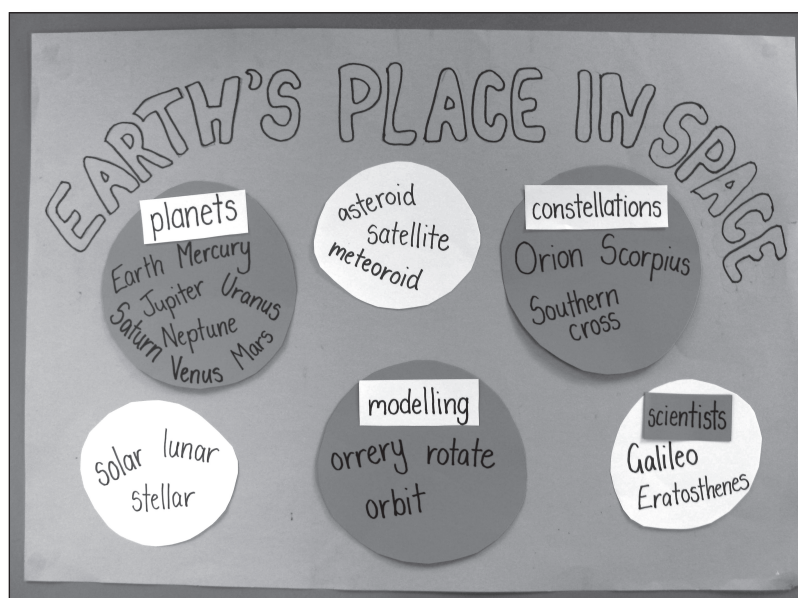 EARTH'S PLACE IN SPACE
planets
Earth Mercury
Jupiter Uranus
Saturn Neptune
Venus Mars
asteroid
satellite
meteoroid
constellations
Orion Scorpius
Southern
cross
solar lunar
stellar
modelling
orrery rotate
orbit
scientists
Galileo
Eratosthenes